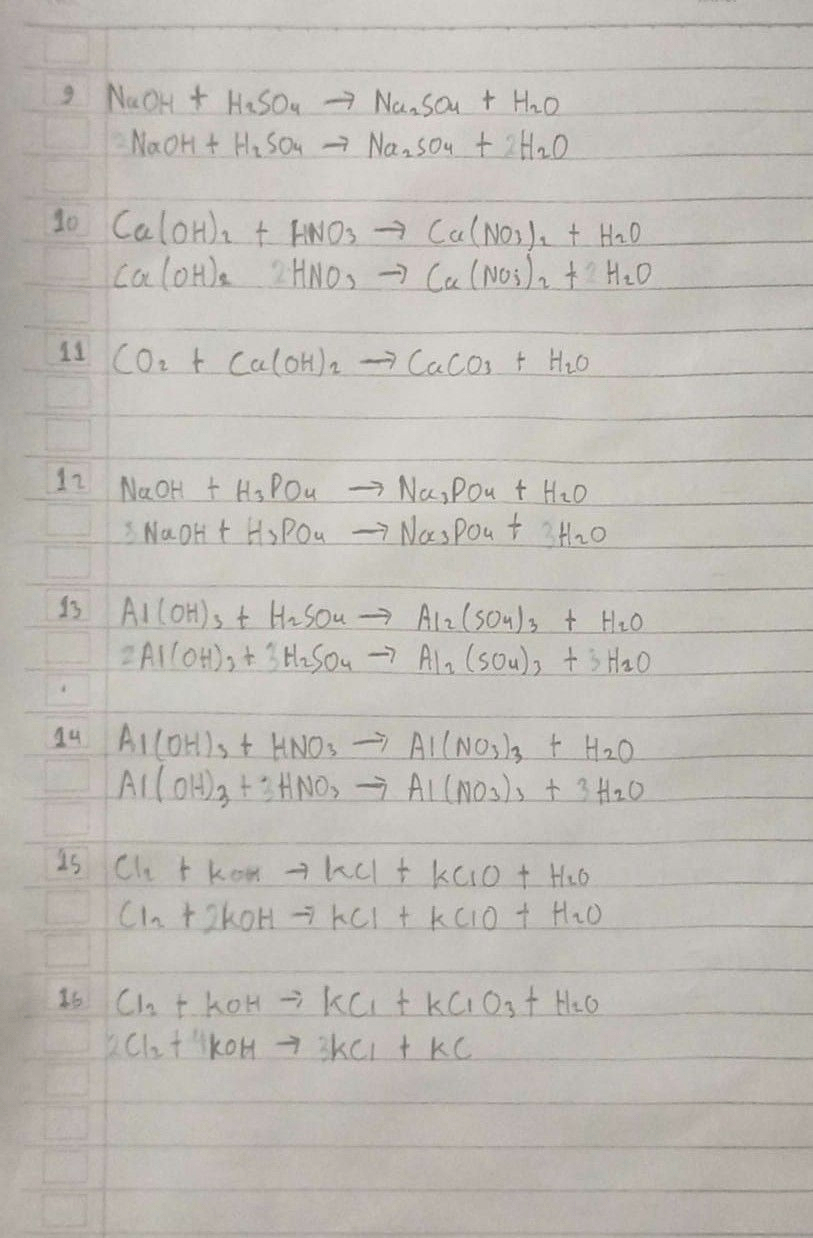 9 NaOH + H₂SO₄ → Na₂SO₄ + H₂O
2NaOH + H₂SO₄ → Na₂SO₄ + 2H₂O
10 Ca(OH)₂ + HNO₃ → Ca(NO₃)₂ + H₂O
Ca(OH)₂ 2HNO₃ → Ca(NO₃)₂ + 2H₂O
11 CO₂ + Ca(OH)₂ → CaCO₃ + H₂O
12 NaOH + H₃PO₄ → Na₃PO₄ + H₂O
3NaOH + H₃PO₄ → Na₃PO₄ + 3H₂O
13 Al(OH)₃ + H₂SO₄ → Al₂(SO₄)₃ + H₂O
2Al(OH)₃ + 3H₂SO₄ → Al₂(SO₄)₃ + 3H₂O
14 Al(OH)₃ + HNO₃ → Al(NO₃)₃ + H₂O
Al(OH)₃ + 3HNO₃ → Al(NO₃)₃ + 3H₂O
15 Cl₂ + KOH → KCl + KClO + H₂O
Cl₂ + 2KOH → KCl + KClO + H₂O
16 Cl₂ + KOH → KCl + KClO₃ + H₂O
2Cl₂ + 4KOH → 3KCl + KC